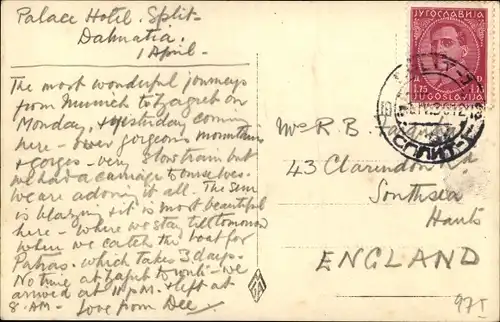 Palace Hotel. Split.
Dalmatia.
1 April.
The most wonderful journeys
from Munich to Zagreb on
Monday, & yesterday coming
here - over gorgeous mountains
& gorges - very slow train but
we had a carriage to ourselves.
We are adoring it all. The sun
is blazing & it is most beautiful
here - where we stay till tomorrow
when we catch the boat for
Patras. which takes 3 days.
No time at Zagreb to write - we
arrived at 11 p.m. & left at
8. A.M. - Love from Dee.
ЈУГОСЛАВИЈА
1.75
JUGOSLAVIJA
SPLIT-2
СПЛИТ-2
Mrs R. B.
43 Clarendon Rd
Southsea
Hants
ENGLAND
975